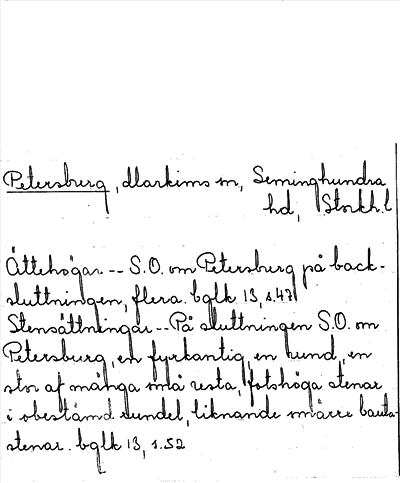 Petersburg, Markims sn, Seminghundra
hd, Stockh.l
Ättehögar -- S.O. om Petersburg på back-
sluttningen, flera. bglk 13, s.47
Stensättningar -- På sluttningen S.O. om
Petersburg, en fyrkantig, en rund, en
stor af många små resta, fotshöga stenar
i obestämd rundel, liknande smärre bauta-
stenar. bglk 13, s.52